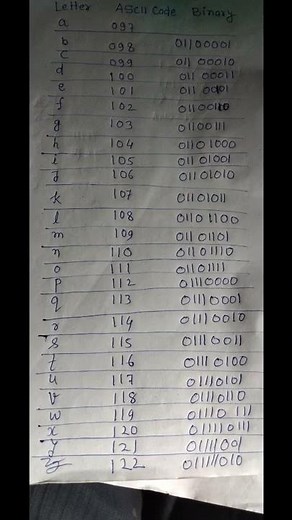 Letter ASCII Code Binary
a 097
b 098 01100001
c 099 01100010
d 100 01100011
e 101
f 102
g 103 01100111
h 104 01101000
i 105 01101001
j 106 01101010
k 107 01101011
l 108 01101100
m 109 01101101
n 110 01101110
o 111 01101111
p 112 01110000
q 113 01110001
r 114 01110010
s 115 01110011
t 116 01110100
u 117 01110101
v 118 01110110
w 119 01110111
x 120 011110111
y 121 01111001
z 122 011111010